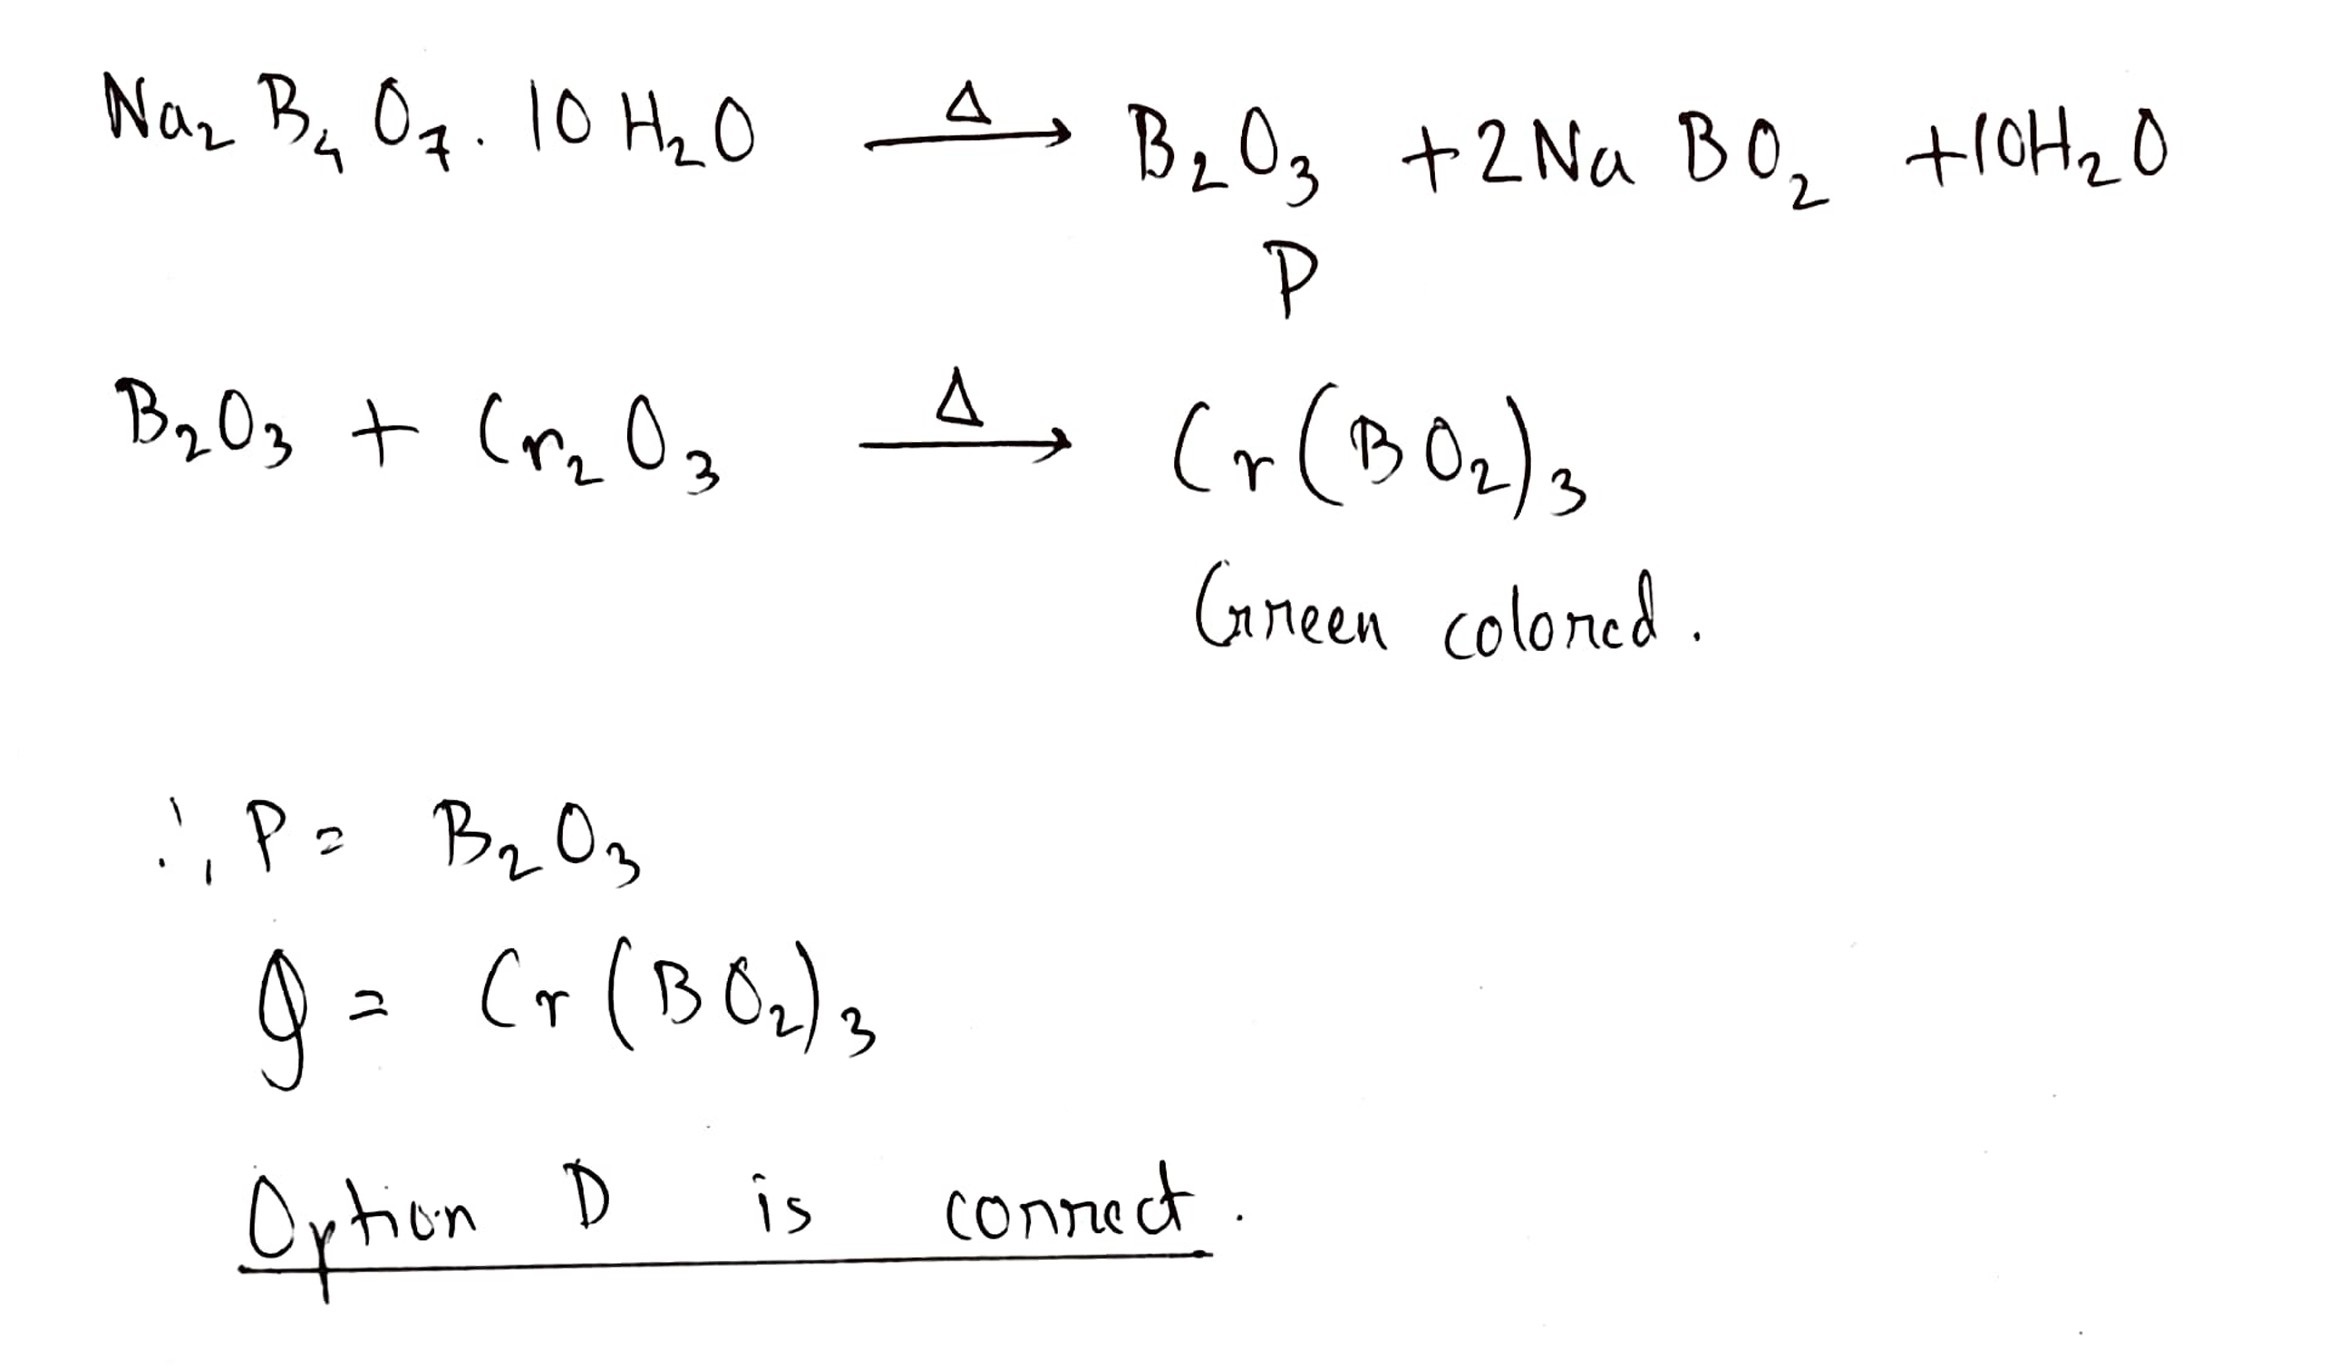 Na₂B₄O₇.10H₂O —Δ→ B₂O₃ + 2NaBO₂ + 10H₂O
P
B₂O₃ + Cr₂O₃ —Δ→ Cr(BO₂)₃
Green colored.
∴, P = B₂O₃
q = Cr(BO₂)₃
Option D is correct.